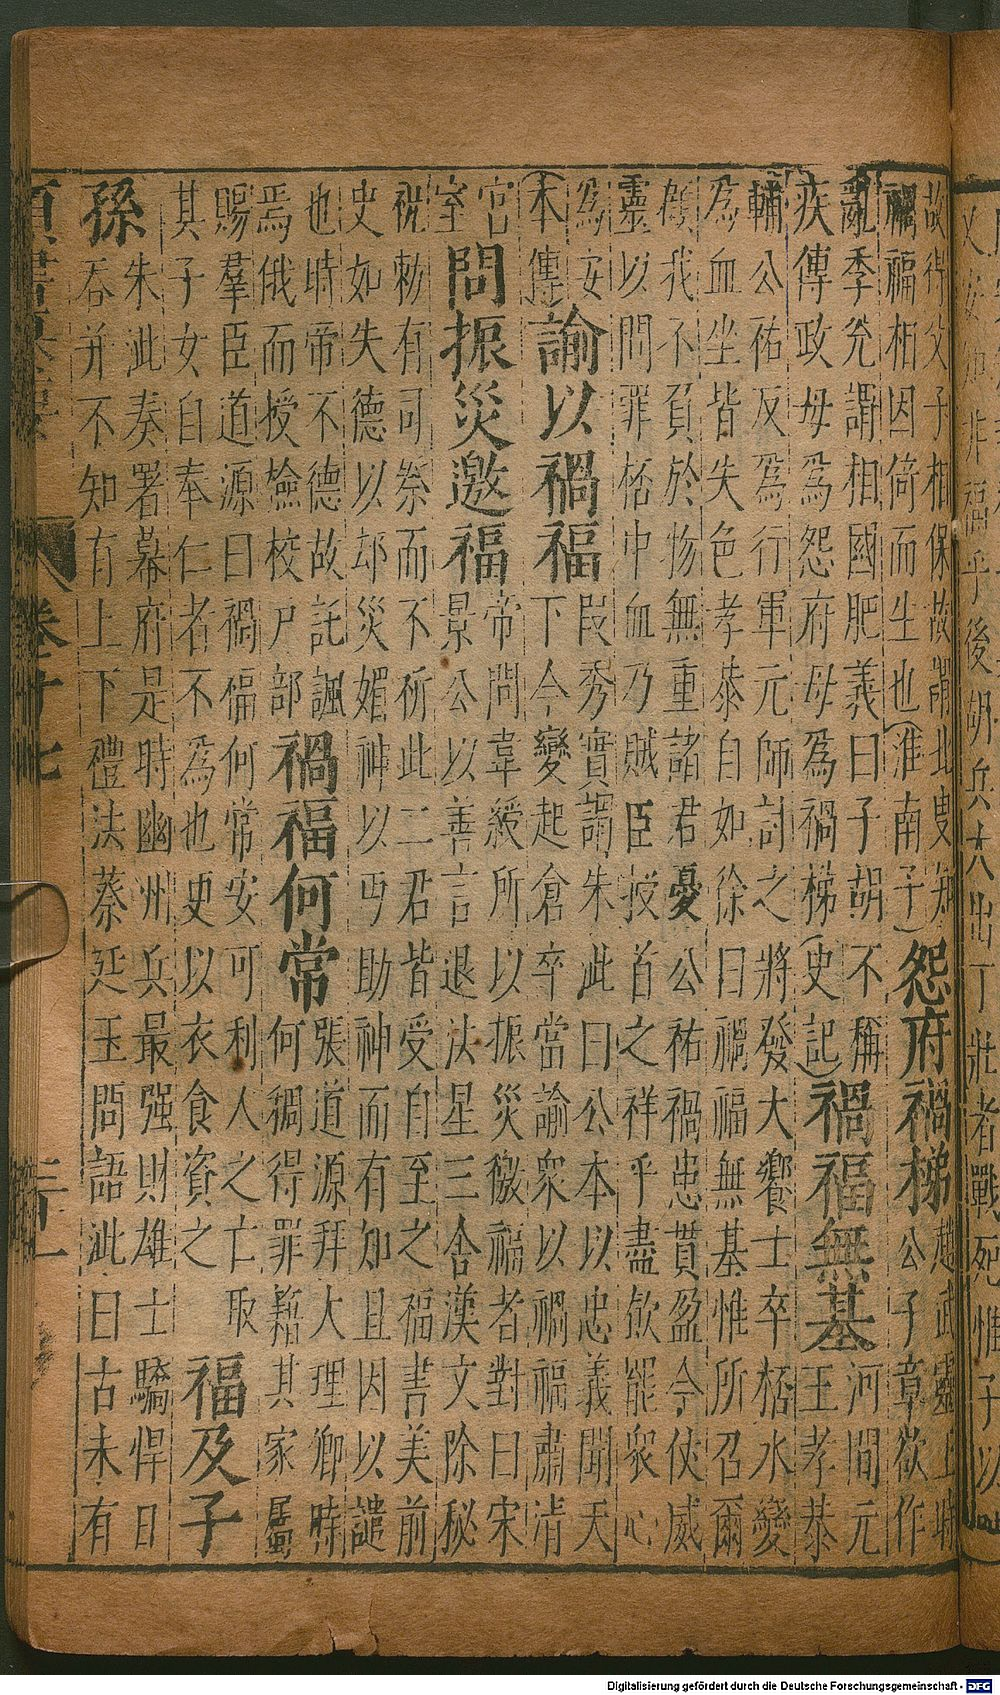 又安知非福乎後胡兵大出丁壯者戰死惟子以
故得父子相保故謂北叟知
禍福相因倚而生也（淮南子）
怨府禍梯
趙武靈王時
公子章欲作
亂季兌謂相國肥義曰子胡不稱
疾傳政毋為怨府毋為禍梯（史記）
禍福無基
河間元
王孝恭
輔公祐反為行軍元師討之將發大饗士卒桮水變
為血坐皆失色孝恭自如徐曰禍福無基惟所召爾
顧我不負於物無重諸君憂公祐禍患貫盈今仗威
靈以問罪桮中血乃賊臣授首之祥乎盡飲罷衆心
為安
本傳
諭以禍福
段秀實謂朱泚曰公本以忠義聞天
下今變起倉卒當諭衆以禍福肅清
宮
室
問振災邀福
帝問韋綬所以振災徼福者對曰宋
景公以善言退法星三舍漢文除秘
祝勅有司祭而不祈此二君皆受自至之福書美前
史如失德以却災媚神以丐助神而有知且因以譴
也時帝不德故託諷
焉俄而授檢校戶部
禍福何常
張道源拜大理卿時
何稠得罪籍其家屬
賜羣臣道源曰禍福何常安可利人之亡取
其子女自奉仁者不為也更以衣食資之
福及子
孫
朱泚奏署幕府是時幽州兵最强財雄士驕悍日
吞并不知有上下禮法蔡廷玉問語泚曰古未有
Digitalisierung gefördert durch die Deutsche Forschungsgemeinschaft - DFG